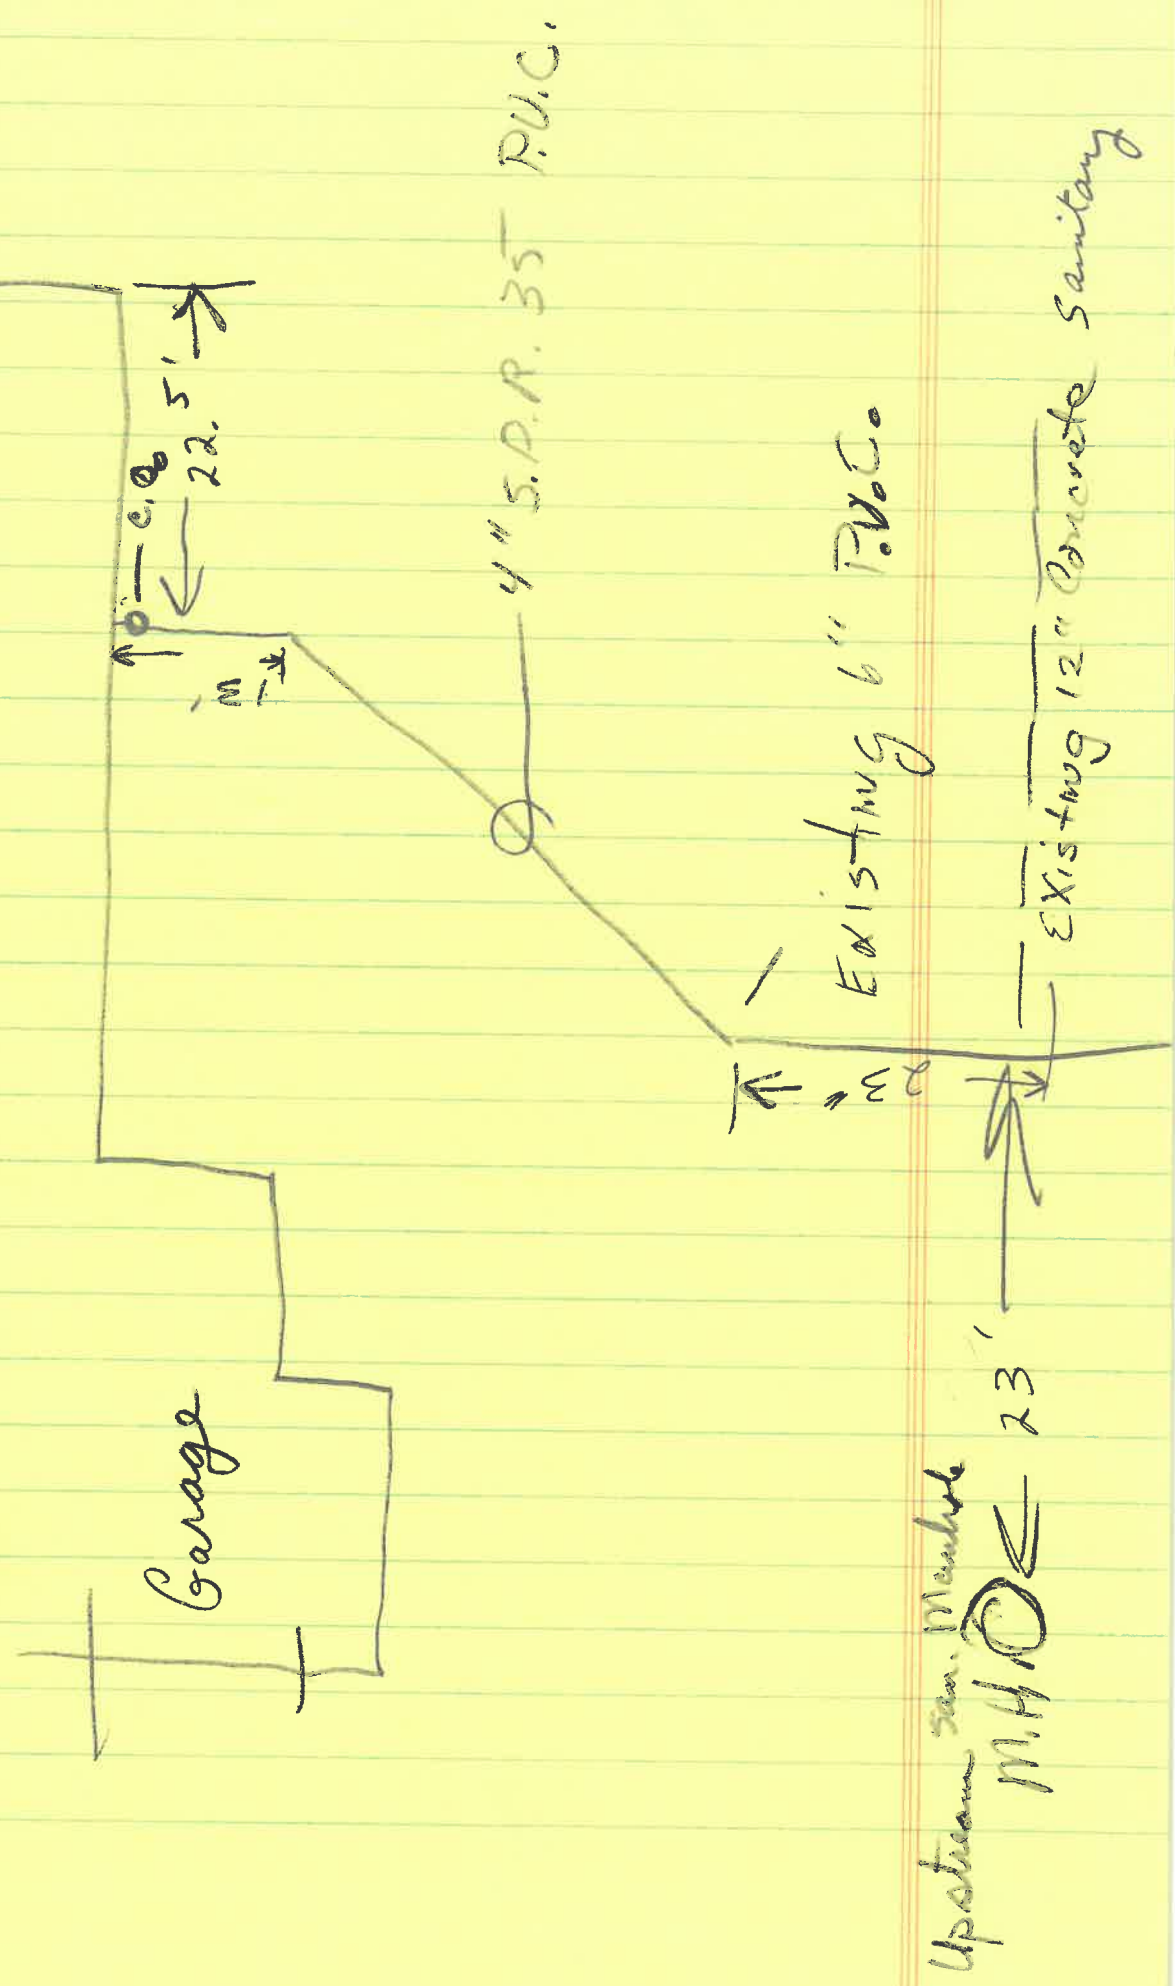 Garage
C.O.
22.5'
3'
4" S.D.R. 35 P.V.C.
Existing 6" P.V.C.
Existing 12" Concrete Sanitary
23'
Upstream San. Manhole
M.H.